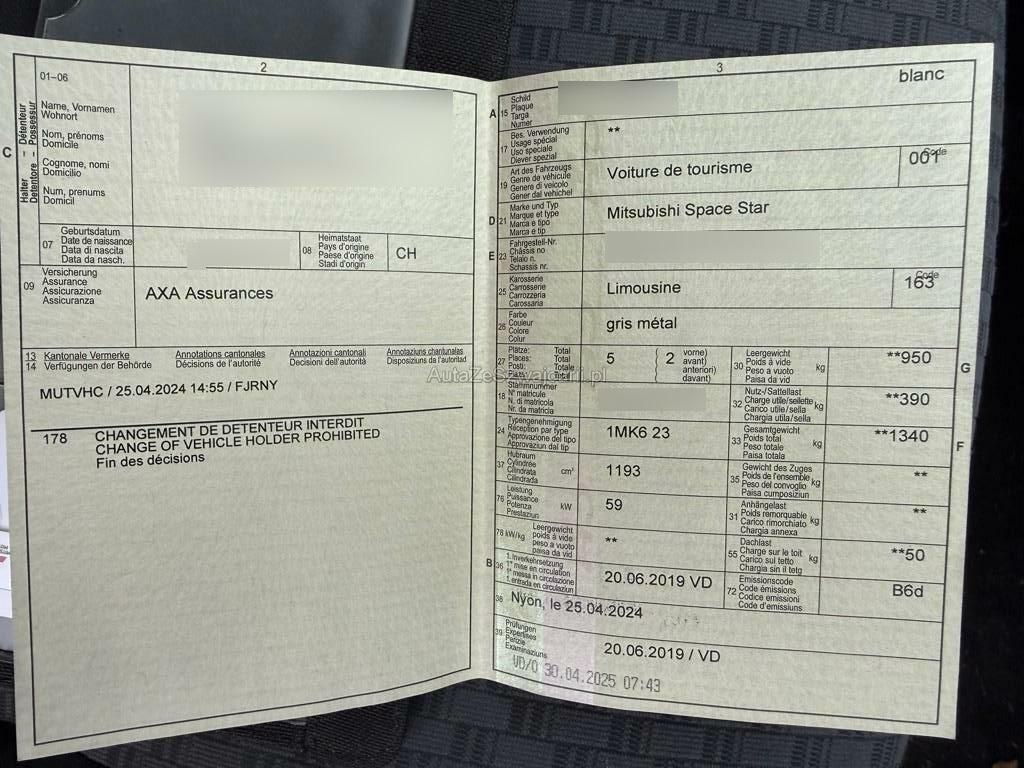 2
01-06
Halter – Détenteur
Detentore – Possessur
C
Name, Vornamen
Wohnort
Nom, prénoms
Domicile
Cognome, nomi
Domicilio
Num, prenums
Domicil
07
Geburtsdatum
Date de naissance
Data di nascita
Data da nasch.
08
Heimatstaat
Pays d'origine
Paese d'origine
Stadi d'origin
CH
09
Versicherung
Assurance
Assicurazione
Assicuranza
AXA Assurances
13 Kantonale Vermerke
14 Verfügungen der Behörde
Annotations cantonales
Décisions de l'autorité
Annotazioni cantonali
Decisioni dell'autorità
Annotaziuns chantunalas
Disposiziuns da l'autoritad
MUTVHC / 25.04.2024 14:55 / FJRNY
178 CHANGEMENT DE DETENTEUR INTERDIT
CHANGE OF VEHICLE HOLDER PROHIBITED
Fin des décisions
3
blanc
A 15
Schild
Plaque
Targa
Numer
17
Bes. Verwendung
Usage spécial
Uso speciale
Diever spezial
**
19
Art des Fahrzeugs
Genre de véhicule
Genere di veicolo
Gener dal vehichel
Voiture de tourisme
Code
001
D 21
Marke und Typ
Marque et type
Marca e tipo
Marca e tip
Mitsubishi Space Star
E 23
Fahrgestell-Nr.
Châssis no
Telaio n.
Schassis nr.
25
Karosserie
Carrosserie
Carrozzeria
Carossaria
Limousine
Code
163
26
Farbe
Couleur
Colore
Colur
gris métal
27
Plätze: Total
Places: Total
Posti: Totale
Plazs: Total
5
2
vorne)
avant)
anteriori)
davant)
30
Leergewicht
Poids à vide
Peso a vuoto
Paisa da vid
kg
**950
G
18
Stammnummer
N° matricule
N. di matricola
Nr. da matricla
32
Nutz-/Sattellast
Charge utile/sellette
Carico utile/sella
Chargia utila/sella
kg
**390
24
Typengenehmigung
Réception par type
Approvazione del tipo
Approvaziun dal tip
1MK6 23
33
Gesamtgewicht
Poids total
Peso totale
Paisa totala
kg
**1340
F
37
Hubraum
Cylindrée
Cilindrata
Cilindrada
cm³
1193
35
Gewicht des Zuges
Poids de l'ensemble
Peso del convoglio
Paisa cumposiziun
kg
**
76
Leistung
Puissance
Potenza
Prestaziun
kW
59
31
Anhängelast
Poids remorquable
Carico rimorchiato
Chargia annexa
kg
**
78 kW/kg
Leergewicht
poids à vide
peso a vuoto
paisa da vid
**
55
Dachlast
Charge sur le toit
Carico sul tetto
Chargia sin il tetg
kg
**50
B 36
1. Inverkehrsetzung
1re mise en circulation
1a messa in circolazione
1. entrada en circulaziun
20.06.2019 VD
72
Emissionscode
Code émissions
Codice emissioni
Code d'emissiuns
B6d
38
Nyon, le 25.04.2024
39
Prüfungen
Expertises
Perizie
Examinaziuns
20.06.2019 / VD
VD/Q 30.04.2025 07:43
AutaZeSzwajcarii.pl